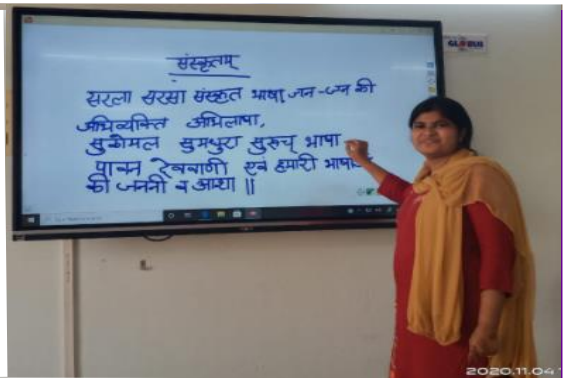 संस्कृतम्
GLOBUS
सरला सरसा संस्कृत भाषा, जन-जन की
अभिव्यक्ति अभिलाषा,
सुकोमल सुमधुरा सुरुच् भाषा
पावन देववाणी एवं हमारी
की जननी व आश्रा ||
2020.11.04